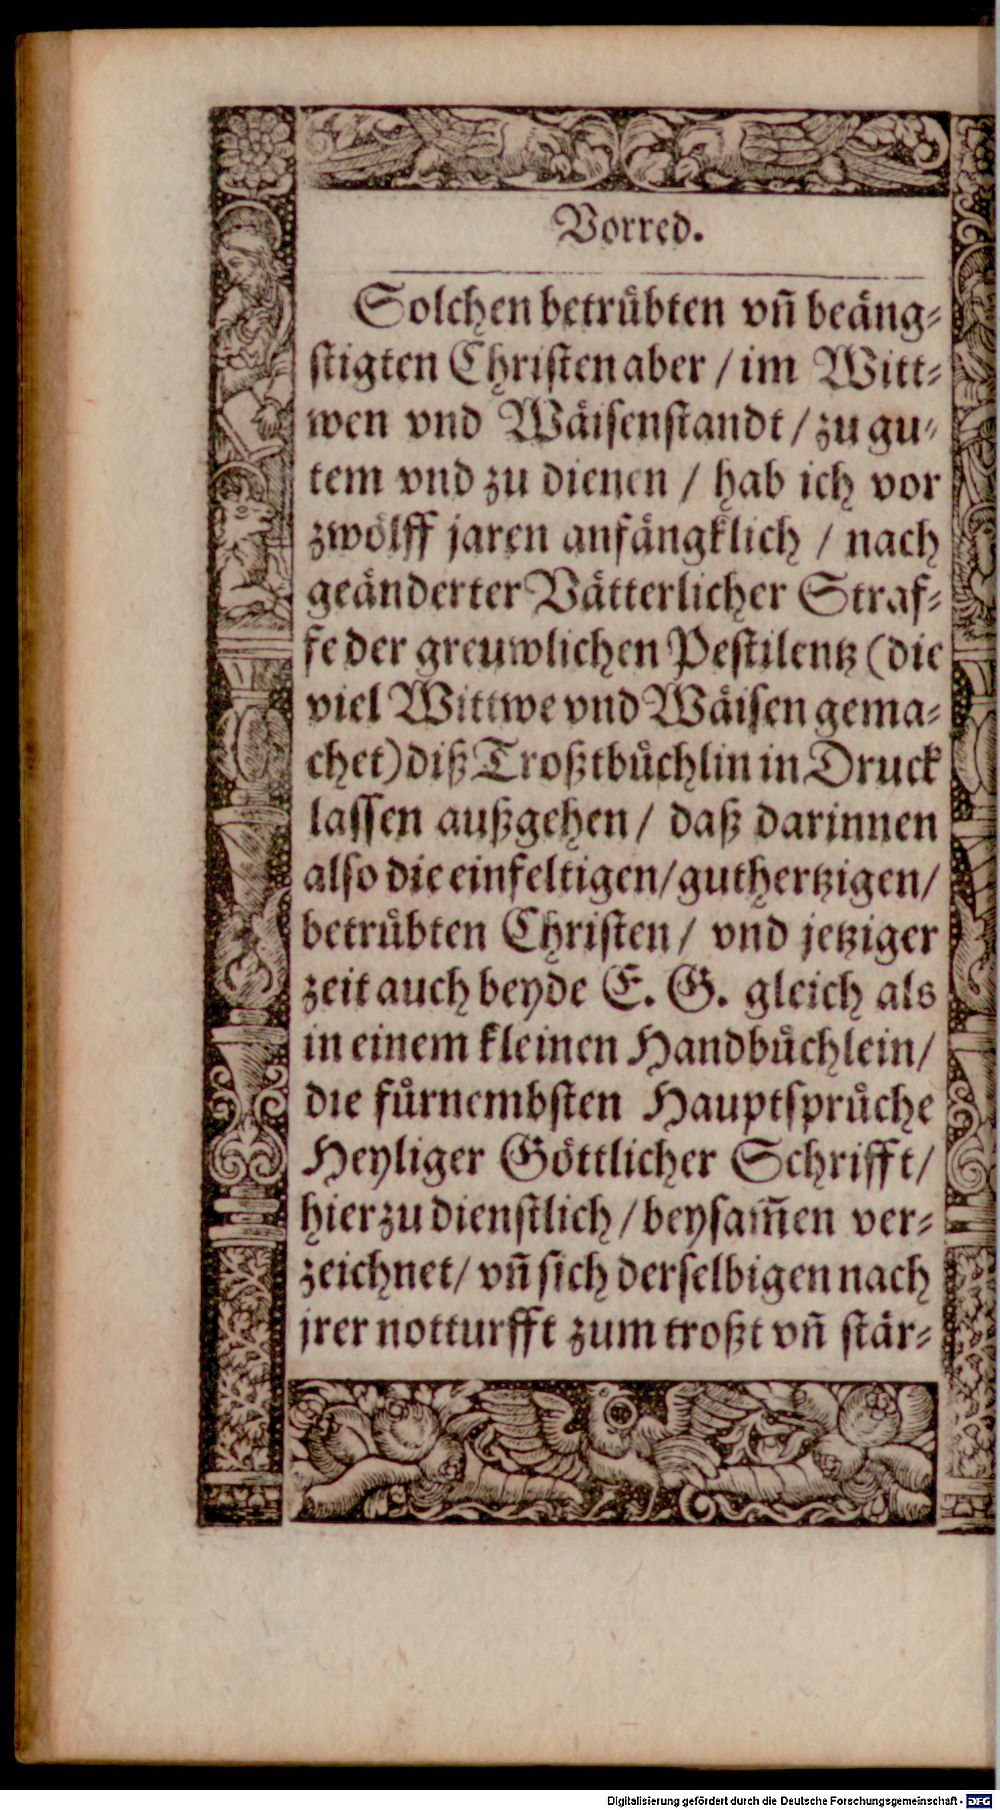 Vorred.
Solchen betruͤbten vn̄ beaͤng⸗
ſtigten Chriſten aber / im Witt⸗
wen vnd Waͤiſenſtandt / zu gu⸗
tem vnd zu dienen / hab ich vor
zwoͤlff jaren anfaͤngklich / nach
geaͤnderter Vaͤtterlicher Straf⸗
fe der greuwlichen Peſtilentz (die
viel Wittwe vnd Waͤiſen gema⸗
chet) diß Troßtbuͤchlin in Druck
laſſen außgehen / daß darinnen
alſo die einfeltigen / guthertzigen /
betruͤbten Chriſten / vnd jetziger
zeit auch beyde E. G. gleich als
in einem kleinen Handbuͤchlein /
die fuͤrnembſten Hauptſpruͤche
Heyliger Goͤttlicher Schrifft /
hierzu dienſtlich / beyſam̄en ver⸗
zeichnet / vn̄ ſich derſelbigen nach
jrer notturfft zum troßt vn̄ ſtaͤr⸗
Digitalisierung gefördert durch die Deutsche Forschungsgemeinschaft - DFG